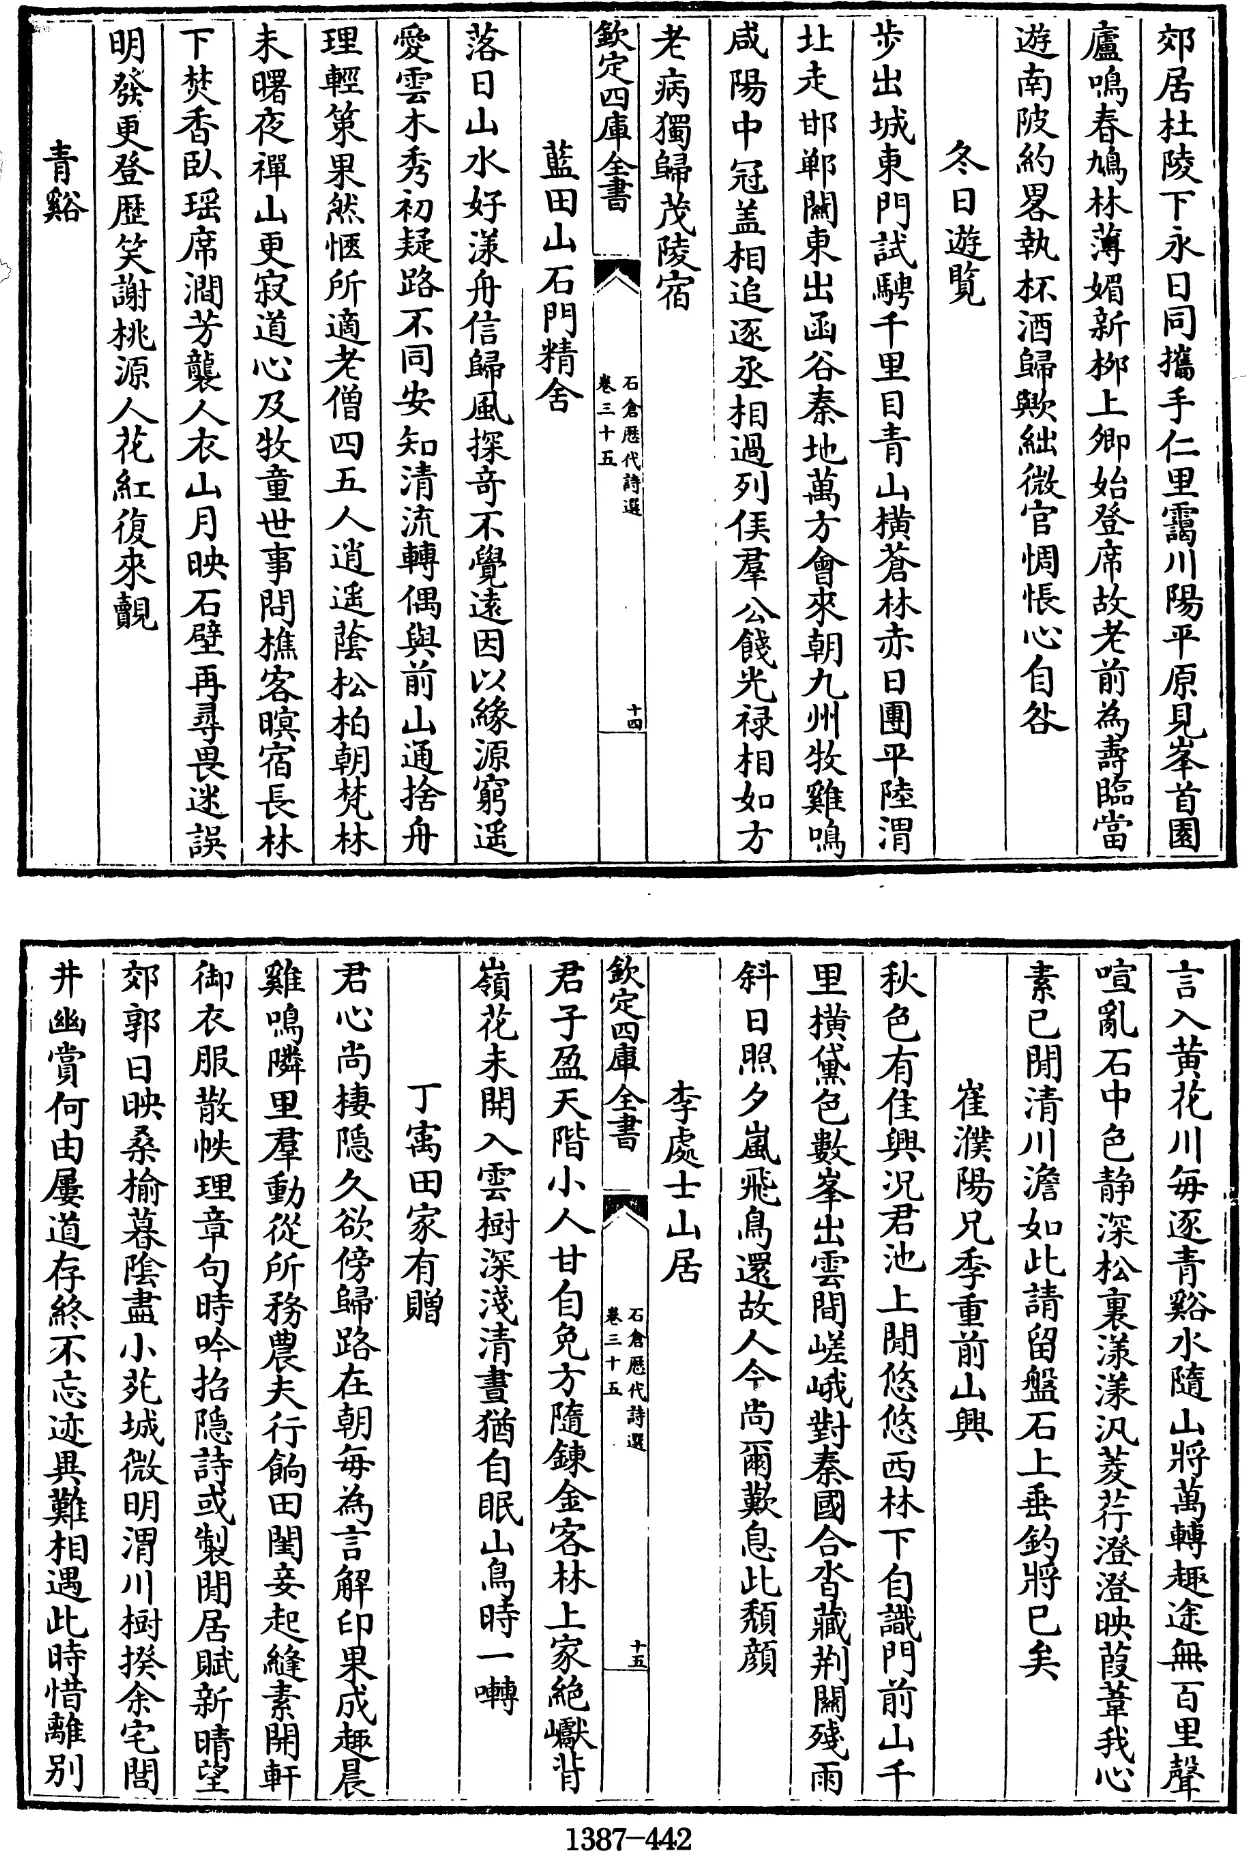 郊居杜陵下永日同攜手仁里靄川陽平原見峯首園
廬鳴春鳩林薄媚新栁上卿始登席故老前為壽臨當
遊南陂約畧執杯酒歸歟絀微官惆悵心自咎
冬日遊覧
步出城東門試騁千里目青山横蒼林赤日團平陸渭
北走邯鄲關東出函谷秦地萬方會來朝九州牧雞鳴
咸陽中冠盖相追逐丞相過列侯羣公餞光禄相如方
老病獨歸茂陵宿
欽定四庫全書
石倉歷代詩選
卷三十五
十四
藍田山石門精舍
落日山水好漾舟信歸風探奇不覺逺因以緣源窮遥
愛雲木秀初疑路不同安知清流轉偶與前山通捨舟
理輕策果然愜所適老僧四五人逍遥蔭松柏朝梵林
未曙夜禪山更寂道心及牧童世事問樵客暝宿長林
下焚香臥瑶席澗芳襲人衣山月映石壁再尋畏迷誤
明發更登歴笑謝桃源人花紅復來覿
青谿
言入黄花川每逐青谿水隨山將萬轉趣途無百里聲
喧亂石中色静深松裏漾漾汎菱荇澄澄映葭葦我心
素已閒清川澹如此請留盤石上垂釣將已矣
崔濮陽兄季重前山興
秋色有佳興况君池上閒悠悠西林下自識門前山千
里横黛色數峯出雲間嵯峨對秦國合沓藏荆關殘雨
斜日照夕嵐飛鳥還故人今尚爾歎息此頽顔
李處士山居
欽定四庫全書
石倉歷代詩選
卷三十五
十五
君子盈天階小人甘自免方隨鍊金客林上家絶巘背
嶺花未開入雲樹深淺清晝猶自眠山鳥時一囀
丁㝢田家有贈
君心尚棲隠久欲傍歸路在朝每為言解印果成趣晨
雞鳴隣里羣動從所務農夫行餉田閨妾起縫素開軒
御衣服散帙理章句時吟招隠詩或製閒居賦新晴望
郊郭日映桑榆暮陰盡小苑城微明渭川樹揆余宅閭
井幽賞何由屢道存終不忘迹異難相遇此時惜離别
1387-442